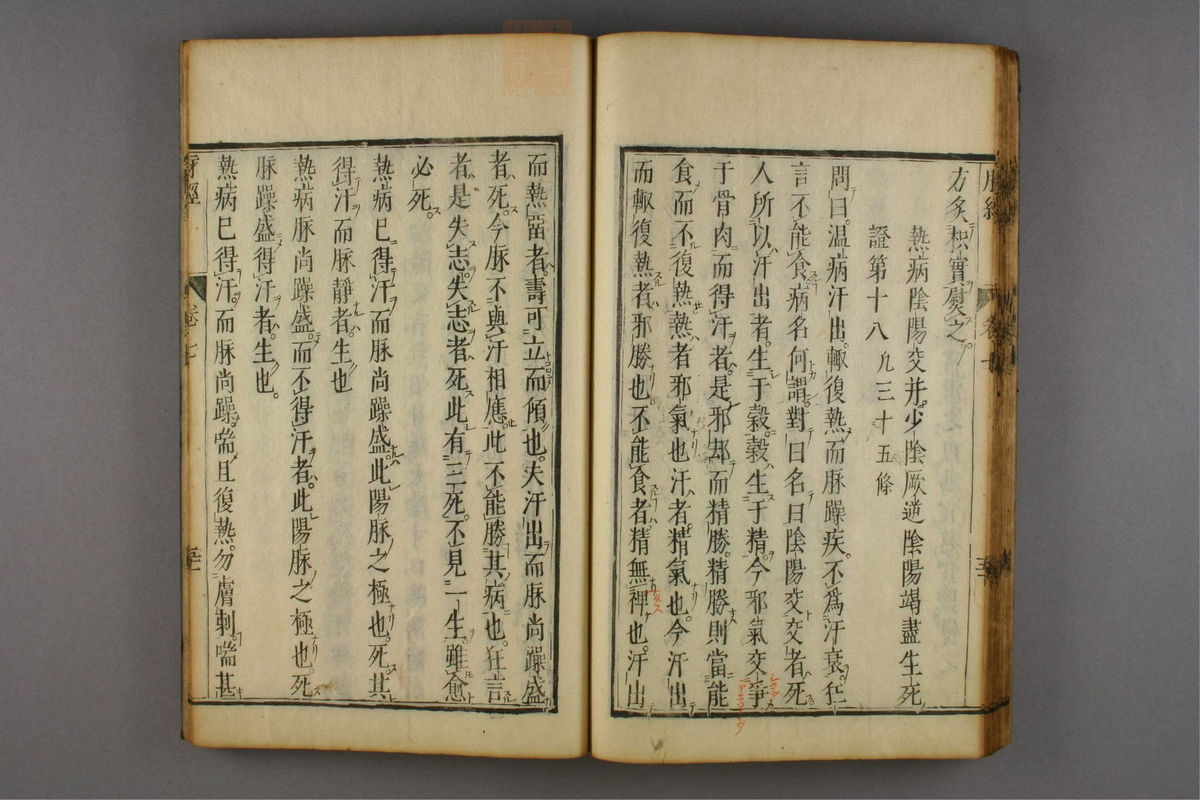 脉經 卷七
方炙枳實熨之
熱病陰陽交并少陰厥逆陰陽竭盡生死
證第十八 凡三十五條
問曰温病汗出輙復熱而脉躁疾不為汗衰狂
言不能食病名何謂對曰名曰陰陽交交者死
人所以汗出者生于榖榖生于精今邪氣交爭
于骨肉而得汗者是邪却而精勝精勝則當能
食而不復熱熱者邪氣也汗者精氣也今汗出
而輙復熱者邪勝也不能食者精無裨也汗出
而熱畱者壽可立而傾也夫汗出而脉尚躁盛
者死今脉不與汗相應此不能勝其病也狂言
者是失志失志者死此有三死不見一生雖愈
必死
熱病已得汗而脉尚躁盛此陽脉之極也死其
得汗而脉靜者生也
熱病脉尚躁盛而不得汗者此陽脉之極也死
脉躁盛得汗者生也
熱病已得汗而脉尚躁喘且復熱勿膚刺喘甚
脉經 卷七